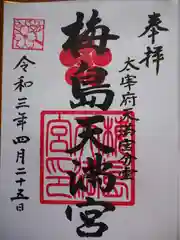 奉拝
太宰府天満宮分霊
梅島天満宮
令和三年四月二十五日